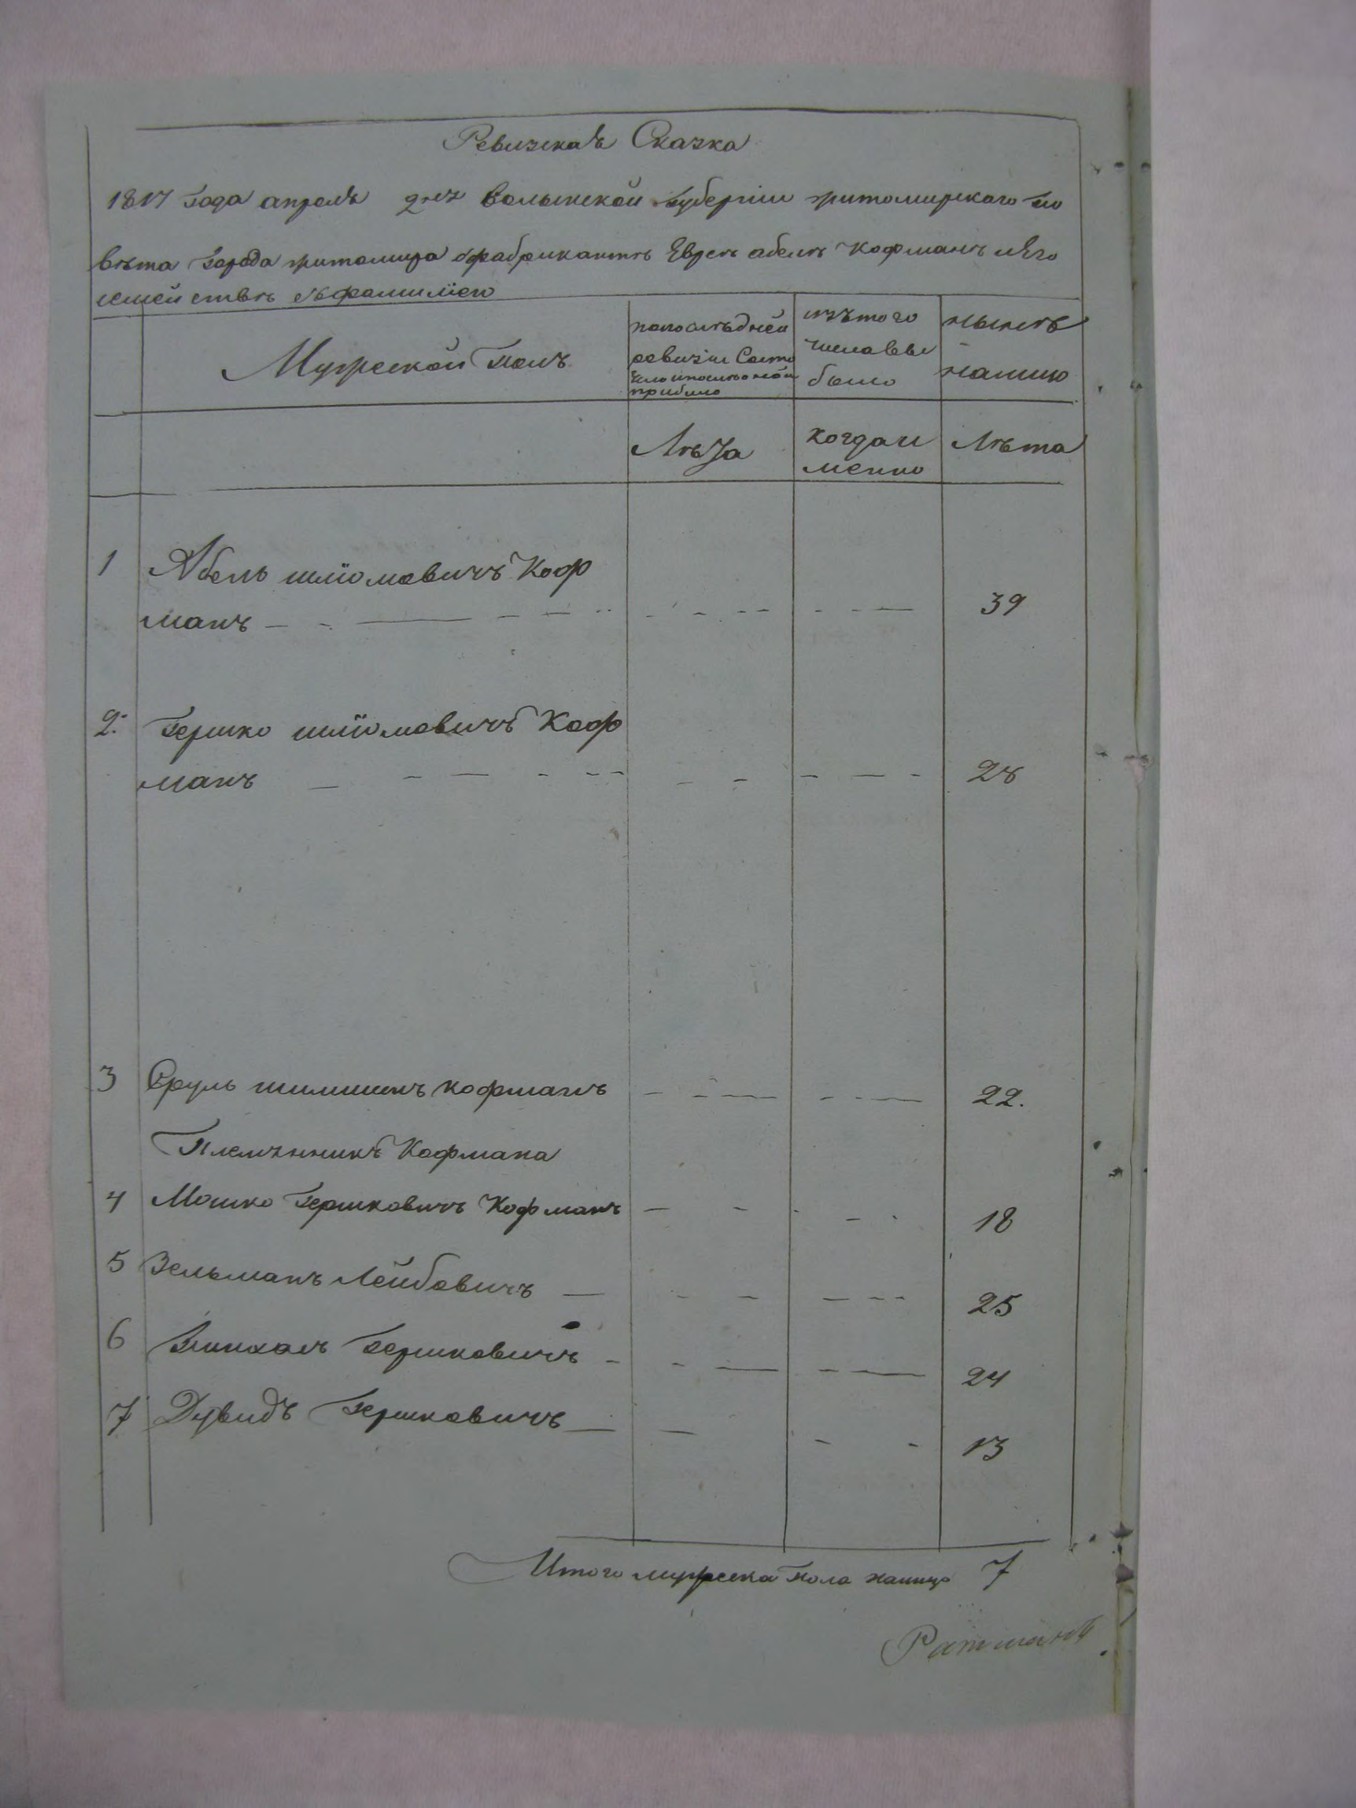 Ревизская Сказка
1817 года апреля дня волынской губернии житомирского по
вѣта города житомира фабрикантъ Еврей абель Кофманъ и его
семействѣ съ фамилиею
Мужеской полъ
по последней
ревизии Состо
яло и после оной
прибыло
изъ того
числа вы
было
нынѣ
налицо
Лѣта
когда и
менно
Лѣта
1 Абель шлиомовичъ Коф
манъ 39
2. Гершко шлиомовичъ Коф
манъ 28
3 Сруль шлиомовичъ кофманъ 22.
Племянникъ Кофмана
4 Мошко Гершковичъ Кофманъ 18
5 Зельманъ Лейбовичъ 25
6 Гершковичъ 24
7 Дувидъ Гершковичъ 13
Итого мужеска пола налицо 7
Ратманъ